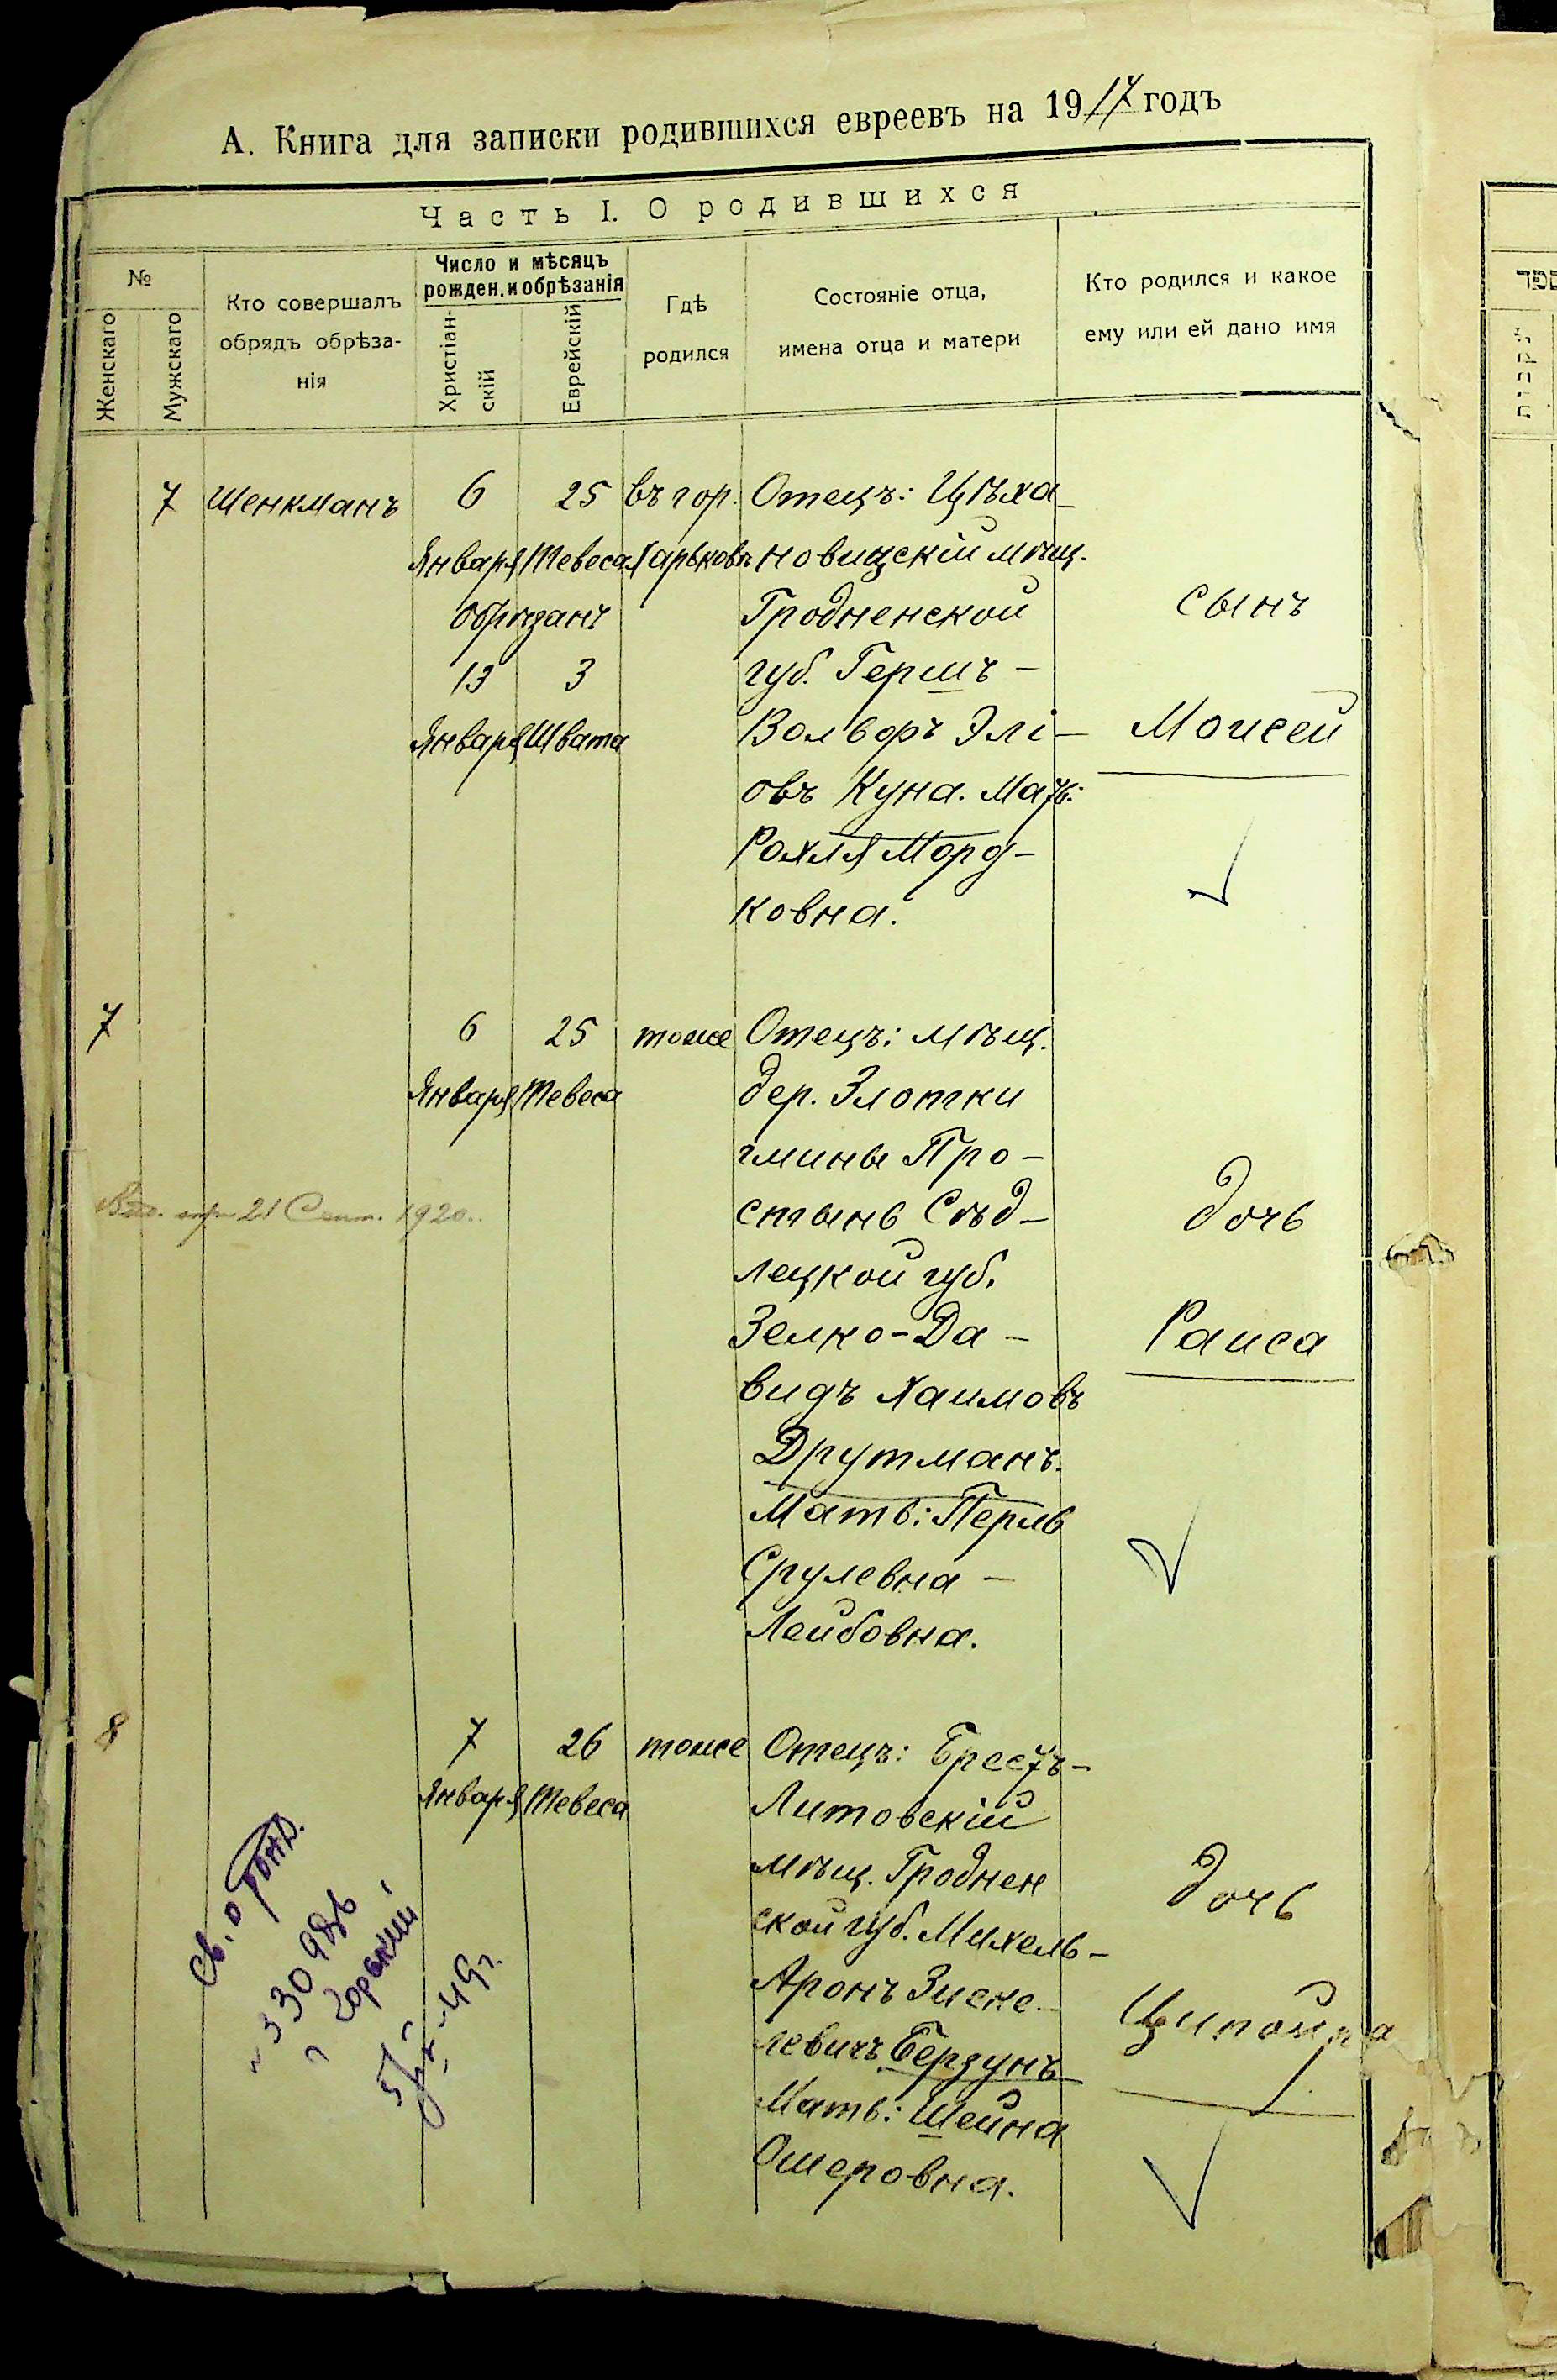 А. Книга для записки родившихся евреевъ на 1917 годъ
Часть I. О родившихся
№
Женскаго
Мужскаго
Кто совершалъ
обрядъ обрѣза-
нія
Число и мѣсяцъ
рожден. и обрѣзанія
Христіан-
скій
Еврейскій
Гдѣ
родился
Состояніе отца,
имена отца и матери
Кто родился и какое
ему или ей дано имя
7 Шенкманъ 6 25 въ гор. Отецъ: Цѣха-
Января Тевеса Харьковѣ новицскій мѣщ.
Обрѣзанъ Гродненской сынъ
13 3 губ. Гершъ-
Января Швата Вольфъ Элі- Моисей
овъ Куна. Мать:
Рохля Морд-
ковна.
7 6 25 тоже Отецъ: мѣщ.
Января Тевеса дер. Злотки
гмины Про-
стынь Сѣд- дочь
21 Сент. 1920.
лецкой губ.
Зелко-Да- Раиса
видъ Хаимовъ
Друтманъ.
Мать: Перль
Срулевна-
Лейбовна.
8 7 26 тоже Отецъ: Брестъ-
Января Тевеса Литовскій
мѣщ. Гроднен дочь
ской губ. Михель-
Аронъ Зиске-
левичъ Берзунъ Ципойра
Мать: Шейна
Ошеровна.
св. о рожд.
49 г.
ספר